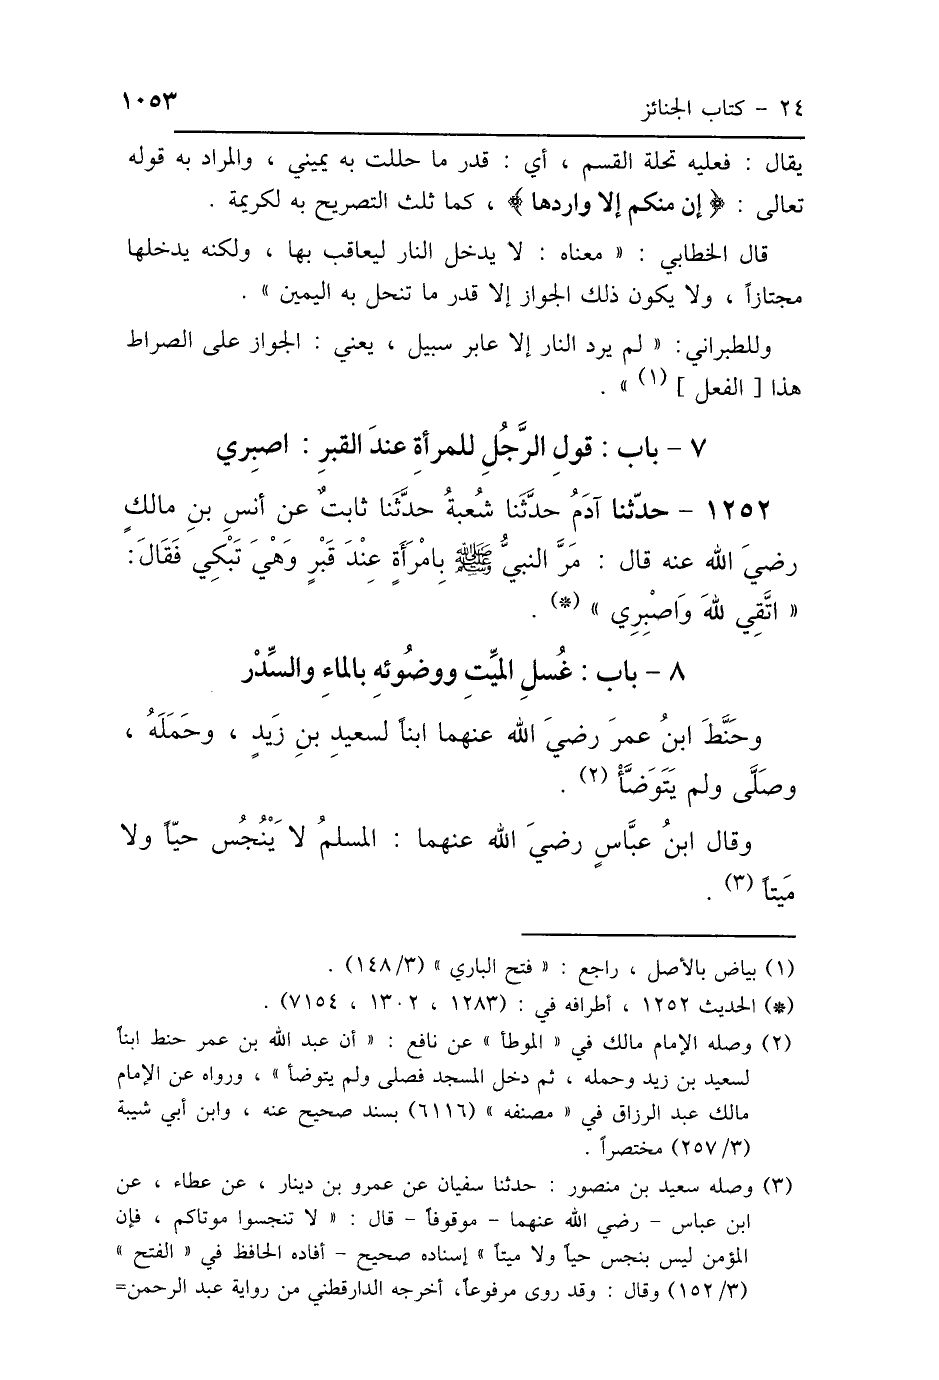 ٢٤ - كتاب الجنائز ١٠٥٣
يقال : فعليه تحلة القسم ، أي : قدر ما حللت به يميني ، والمراد به قوله
تعالى : ﴿ إن منكم إلا واردها ﴾ ، كما ثلث التصريح به لكريمة .
قال الخطابي : « معناه : لا يدخل النار ليعاقب بها ، ولكنه يدخلها
مجتازاً ، ولا يكون ذلك الجواز إلا قدر ما تنحل به اليمين » .
وللطبراني: « لم يرد النار إلا عابر سبيل ، يعني : الجواز على الصراط
هذا [ الفعل ] (١) » .
٧ - باب : قولِ الرَّجُلِ للمرأةِ عندَ القبرِ : اصبِري
١٢٥٢ - حدّثنا آدَمُ حدَّثَنا شُعبةُ حدَّثَنا ثابتٌ عن أنسِ بنِ مالكٍ
رضيَ الله عنه قال : مَرَّ النبيُّ ﷺ بِامْرَأَةٍ عِنْدَ قَبْرٍ وَهْيَ تَبْكِي فَقَالَ:
« اتَّقِي للهَ وَاصْبِرِي » (*) .
٨ - باب : غُسلِ الميِّتِ ووضُوئهِ بالماءِ والسِّدْر
وحَنَّطَ ابنُ عمرَ رضيَ الله عنهما ابناً لسعيدِ بنِ زَيدٍ ، وحَمَلَهُ ،
وصَلَّى ولم يَتَوَضَّأْ (٢) .
وقال ابنُ عبَّاسٍ رضيَ الله عنهما : المسلمُ لا يَنْجُسُ حيّاً ولا
مَيتاً (٣) .
(١) بياض بالأصل ، راجع : « فتح الباري » (٣/ ١٤٨) .
(*) الحديث ١٢٥٢ ، أطرافه في : (١٢٨٣ ، ١٣٠٢ ، ٧١٥٤) .
(٢) وصله الإمام مالك في « الموطأ » عن نافع : « أن عبد الله بن عمر حنط ابناً
لسعيد بن زيد وحمله ، ثم دخل المسجد فصلى ولم يتوضأ » ، ورواه عن الإمام
مالك عبد الرزاق في « مصنفه » (٦١١٦) بسند صحيح عنه ، وابن أبي شيبة
(٣/ ٢٥٧) مختصراً .
(٣) وصله سعيد بن منصور : حدثنا سفيان عن عمرو بن دينار ، عن عطاء ، عن
ابن عباس - رضي الله عنهما - موقوفاً - قال : « لا تنجسوا موتاكم ، فإن
المؤمن ليس بنجس حياً ولا ميتاً » إسناده صحيح - أفاده الحافظ في « الفتح »
(٣/ ١٥٢) وقال : وقد روى مرفوعاً، أخرجه الدارقطني من رواية عبد الرحمن=